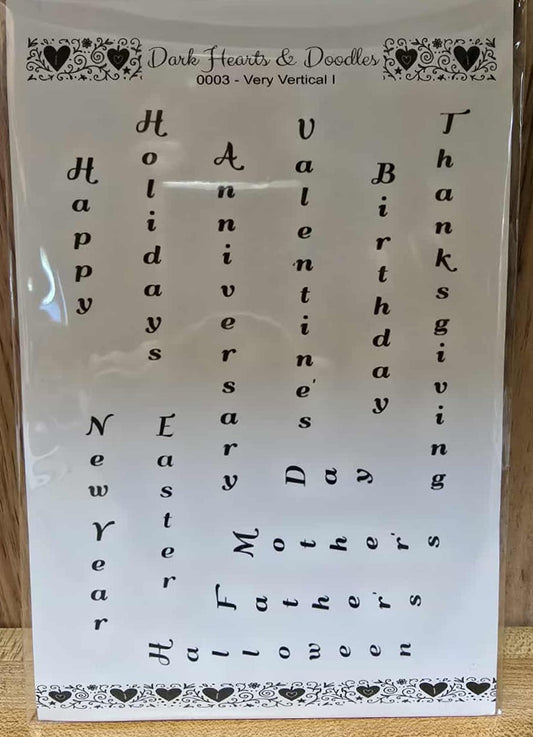 Dark Hearts & Doodles
0003 - Very Vertical I
Happy
Holidays
Anniversary
Valentine's
Birthday
Thanksgiving
New Year
Easter
Day
Mother's
Father's
Halloween